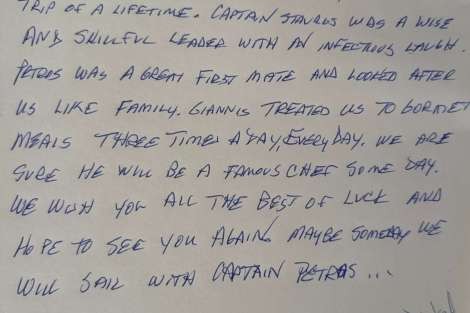 TRIP OF A LIFETIME. CAPTAIN STAVROS WAS A WISE
AND SKILLFUL LEADER WITH AN INFECTIOUS LAUGH.
PETROS WAS A GREAT FIRST MATE AND LOOKED AFTER
US LIKE FAMILY. GIANNIS TREATED US TO GORMET
MEALS THREE TIMES A DAY, EVERYDAY. WE ARE
SURE HE WILL BE A FAMOUS CHEF SOME DAY.
WE WISH YOU ALL THE BEST OF LUCK AND
HOPE TO SEE YOU AGAIN. MAYBE SOMEDAY WE
WILL SAIL WITH CAPTAIN PETROS...